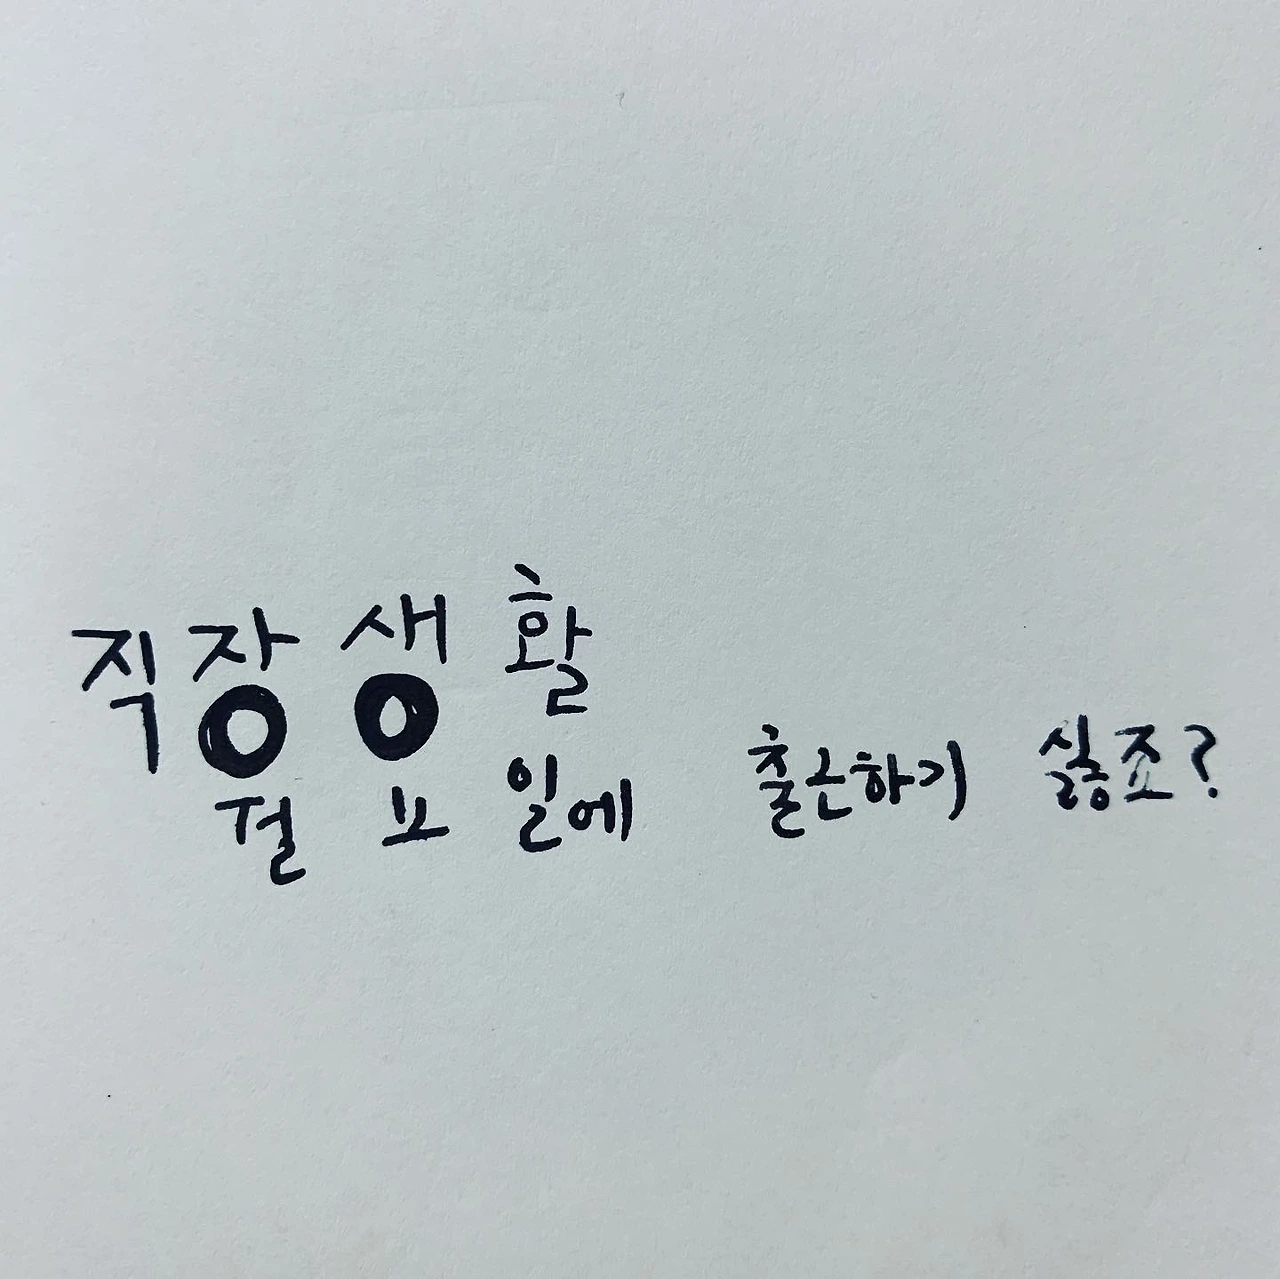 직장생활
월요일에 출근하기 싫죠?